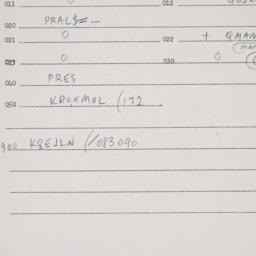 011 012
020 PRAL$= -
0
021 022 + QMAN
023 0 030 0
040 PRES
050 KROXMOL (172
900 KQEJLN (/083090